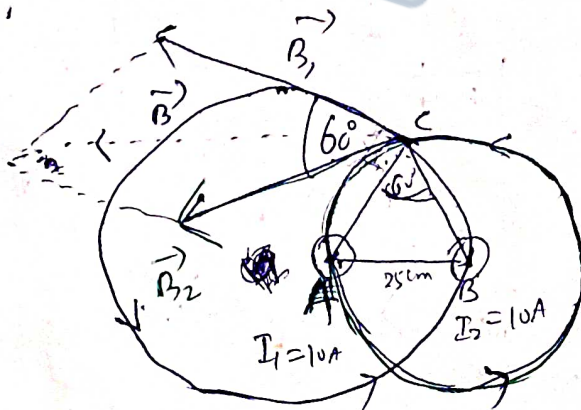 B₁
B
60°
C
60°
B₂
A
25cm
B
I₁=10A
I₂=10A